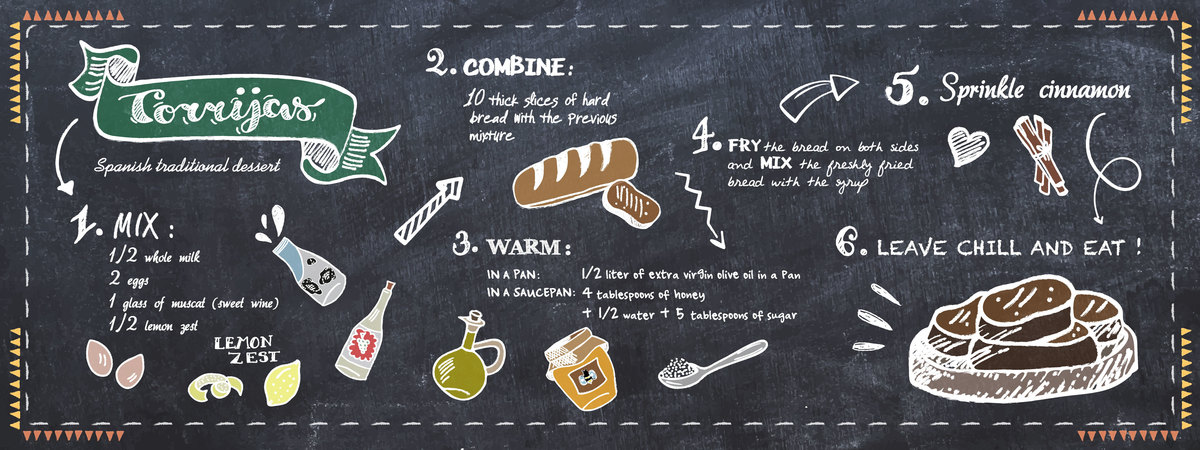 Torrijas
Spanish traditional dessert
1. MIX:
1/2 whole milk
2 eggs
1 glass of muscat (sweet wine)
1/2 lemon zest
LEMON
ZEST
2. COMBINE:
10 thick slices of hard
bread with the previous
mixture
3. WARM:
IN A PAN: 1/2 liter of extra virgin olive oil in a pan
IN A SAUCEPAN: 4 tablespoons of honey
+ 1/2 water + 5 tablespoons of sugar
4. FRY the bread on both sides
and MIX the freshly fried
bread with the syrup
5. Sprinkle cinnamon
6. LEAVE CHILL AND EAT !